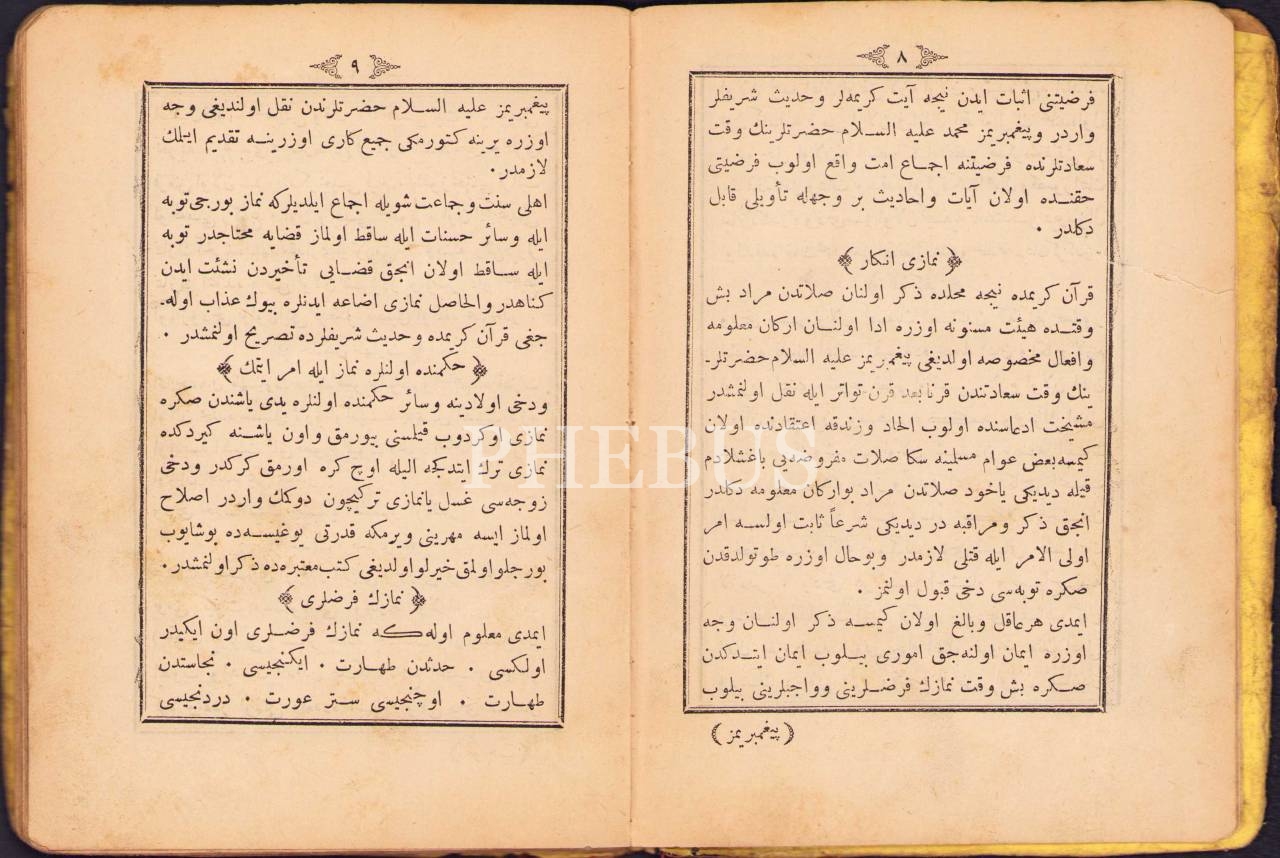 ٨
فرضيتنى اثبات ايدن نيجه آيت كريمه‌لر وحديث شريفلر
واردر وپيغمبريمز محمد عليه السلام حضرتلرينك وقت
سعادتلرنده فرضيتنه اجماع امت واقع اولوب فرضيتى
حقنده اولان آيات واحاديث بر وجهله تأويلى قابل
دكلدر ٠
﴿ نمازى انكار ﴾
قرآن كريمده نيجه محلده ذكر اولنان صلاتدن مراد بش
وقتده هيئت مسنونه اوزره ادا اولنان اركان معلومه
وافعال مخصوصه اولديغى پيغمبريمز عليه السلام حضرتلر-
ينك وقت سعادتندن قرنا بعد قرن تواتر ايله نقل اولنمشدر
مشيخت ادعاسنده اولوب الحاد وزندقه اعتقادنده اولان
كيمسه بعض عوام مسلمينه سكا صلات مفروضه‌يى باغشلادم
قيله ديديكى ياخود صلاتدن مراد بواركان معلومه دكلدر
انجق ذكر ومراقبه در ديديكى شرعاً ثابت اولسه امر
اولى الامر ايله قتلى لازمدر وبوحال اوزره طوتولدقدن
صكره توبه‌سى دخى قبول اولنمز ٠
ايمدى هرعاقل وبالغ اولان كيمسه ذكر اولنان وجه
اوزره ايمان اولنه‌جق امورى بيلوب ايمان ايتدكدن
صكره بش وقت نمازك فرضلرينى وواجبلرينى بيلوب
( پيغمبريمز )
٩
پيغمبريمز عليه السلام حضرتلرندن نقل اولنديغى وجه
اوزره يرينه كتورمكى جميع كارى اوزرينه تقديم ايلمك
لازمدر٠
اهلى سنت وجماعت شويله اجماع ايلديلركه نماز بورجى توبه
ايله وسائر حسنات ايله ساقط اولماز قضايه محتاجدر توبه
ايله ساقط اولان انجق قضايى تأخيردن نشئت ايدن
كناهدر والحاصل نمازى اضاعه ايدنلره بيوك عذاب اوله-
جغى قرآن كريمده وحديث شريفلرده تصريح اولنمشدر ٠
﴿ حكمنده اولنلره نماز ايله امر ايتمك ﴾
ودخى اولادينه وسائر حكمنده اولنلره يدى ياشندن صكره
نمازى اوكردوب قيلسنى بيورمق واون ياشنه كيردكده
نمازى ترك ايتدكجه اليله اوچ كره اورمق كركدر ودخى
زوجه‌سى غسل يانمازى تركيچون دوكمك واردر اصلاح
اولماز ايسه مهرينى ويرمكه قدرتى يوغيسه‌ده بوشايوب
بورجلو اولمق خيرلو اولديغى كتب معتبره‌ده ذكر اولنمشدر٠
﴿ نمازك فرضلرى ﴾
ايمدى معلوم اوله كه نمازك فرضلرى اون ايكيدر
اولكسى ٠ حدثدن طهارت ٠ ايكنجيسى ٠ نجاستدن
طهارت ٠ اوچنجيسى ستر عورت ٠ دردنجيسى
PHEBUS